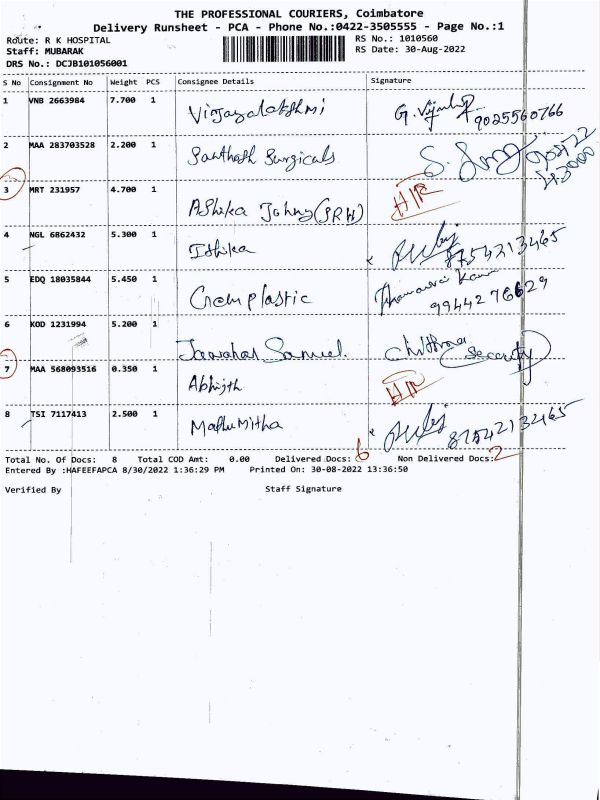 THE PROFESSIONAL COURIERS, Coimbatore
Delivery Runsheet - PCA - Phone No.:0422-3505555 - Page No.:1
Route: R K HOSPITAL RS No.: 1010560
Staff: MUBARAK RS Date: 30-Aug-2022
DRS No.: DCJB101056001
S No Consignment No Weight PCS Consignee Details Signature
1 VNB 2663984 7.700 1 Vijayalakshmi G. 9025560766
2 MAA 283703528 2.200 1 Santhosh Surgicals S.
3 MRT 231957 4.700 1 Ashika Johny (SRH) HIR
4 NGL 6862432 5.300 1 Ishika Ruby 8754213465
5 EDQ 18035844 5.450 1 Gem plastic 9944276629
6 KOD 1231994 5.200 1 Jawahar Samuel. chithra Security
7 MAA 568093516 0.350 1 Abhijith HIR
8 TSI 7117413 2.500 1 Madhu Mitha Ruby 8754213465
Total No. Of Docs: 8 Total COD Amt: 0.00 Delivered Docs: 6 Non Delivered Docs: 2
Entered By :HAFEEFAPCA 8/30/2022 1:36:29 PM Printed On: 30-08-2022 13:36:50
Verified By Staff Signature